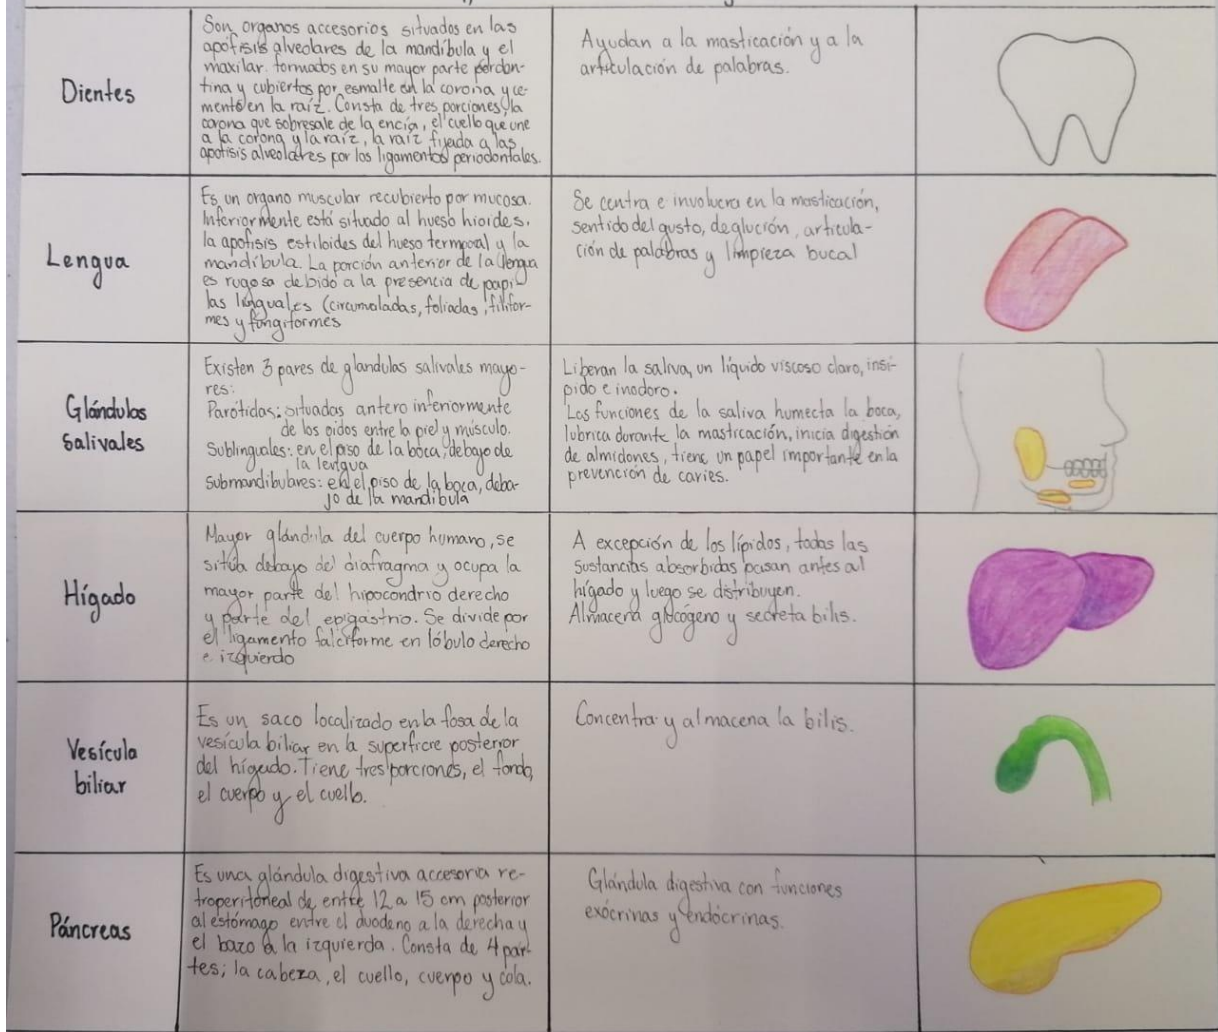 Dientes
Son organos accesorios situados en las
apófisis alveolares de la mandíbula y el
maxilar. formados en su mayor parte por
tina y cubiertos por esmalte en la corona y ce-
mento en la raíz. Consta de tres porciones, la
corona que sobresale de la encía, el cuello que une
a la corona y la raíz, la raíz fijada a las
apófisis alveolares por los ligamentos periodontales.
Ayudan a la masticación y a la
articulación de palabras.
Lengua
Es un organo muscular recubierto por mucosa.
Inferiormente está situado al hueso hioides.
la apofisis estiloides del hueso termporal y la
mandíbula. La porción anterior de la lengua
es rugosa debido a la presencia de papi
las linguales (foliadas, filifor-
mes y fungiformes
Se centra e involucra en la masticación,
sentido del gusto, deglución, articula-
ción de palabras y limpieza bucal
Glándulas
Salivales
Existen 3 pares de glandulas salivales mayo-
res:
Parótidas: situadas antero inferiormente
de los oidos entre la piel y músculo.
Sublinguales: en el piso de la boca, debajo de
la lengua
Submandibulares: en el piso de la boca, deba-
jo de la mandíbula
Liberan la saliva, un líquido viscoso claro, insí-
pido e inodoro.
Las funciones de la saliva humecta la boca,
lubrica durante la masticación, inicia digestión
de almidones, tiene un papel importante en la
prevención de caries.
Hígado
Mayor glándula del cuerpo humano, se
sitúa debajo del diafragma y ocupa la
mayor parte del hipocondrio derecho
y parte del epigastrio. Se divide por
el ligamento falciforme en lóbulo derecho
e izquierdo
A excepción de los lípidos, todas las
sustancias absorbidas pasan antes al
hígado y luego se distribuyen.
Almacena glucógeno y secreta bilis.
Vesícula
biliar
Es un saco localizado en la fosa de la
vesícula biliar en la superficie posterior
del hígado. Tiene tres porciones, el fondo,
el cuerpo y el cuello.
Concentra y almacena la bilis.
Páncreas
Es una glándula digestiva accesoria re-
troperitoneal de entre 12 a 15 cm posterior
al estómago entre el duodeno a la derecha y
el bazo a la izquierda. Consta de 4 par-
tes; la cabeza, el cuello, cuerpo y cola.
Glándula digestiva con funciones
exócrinas y endócrinas.